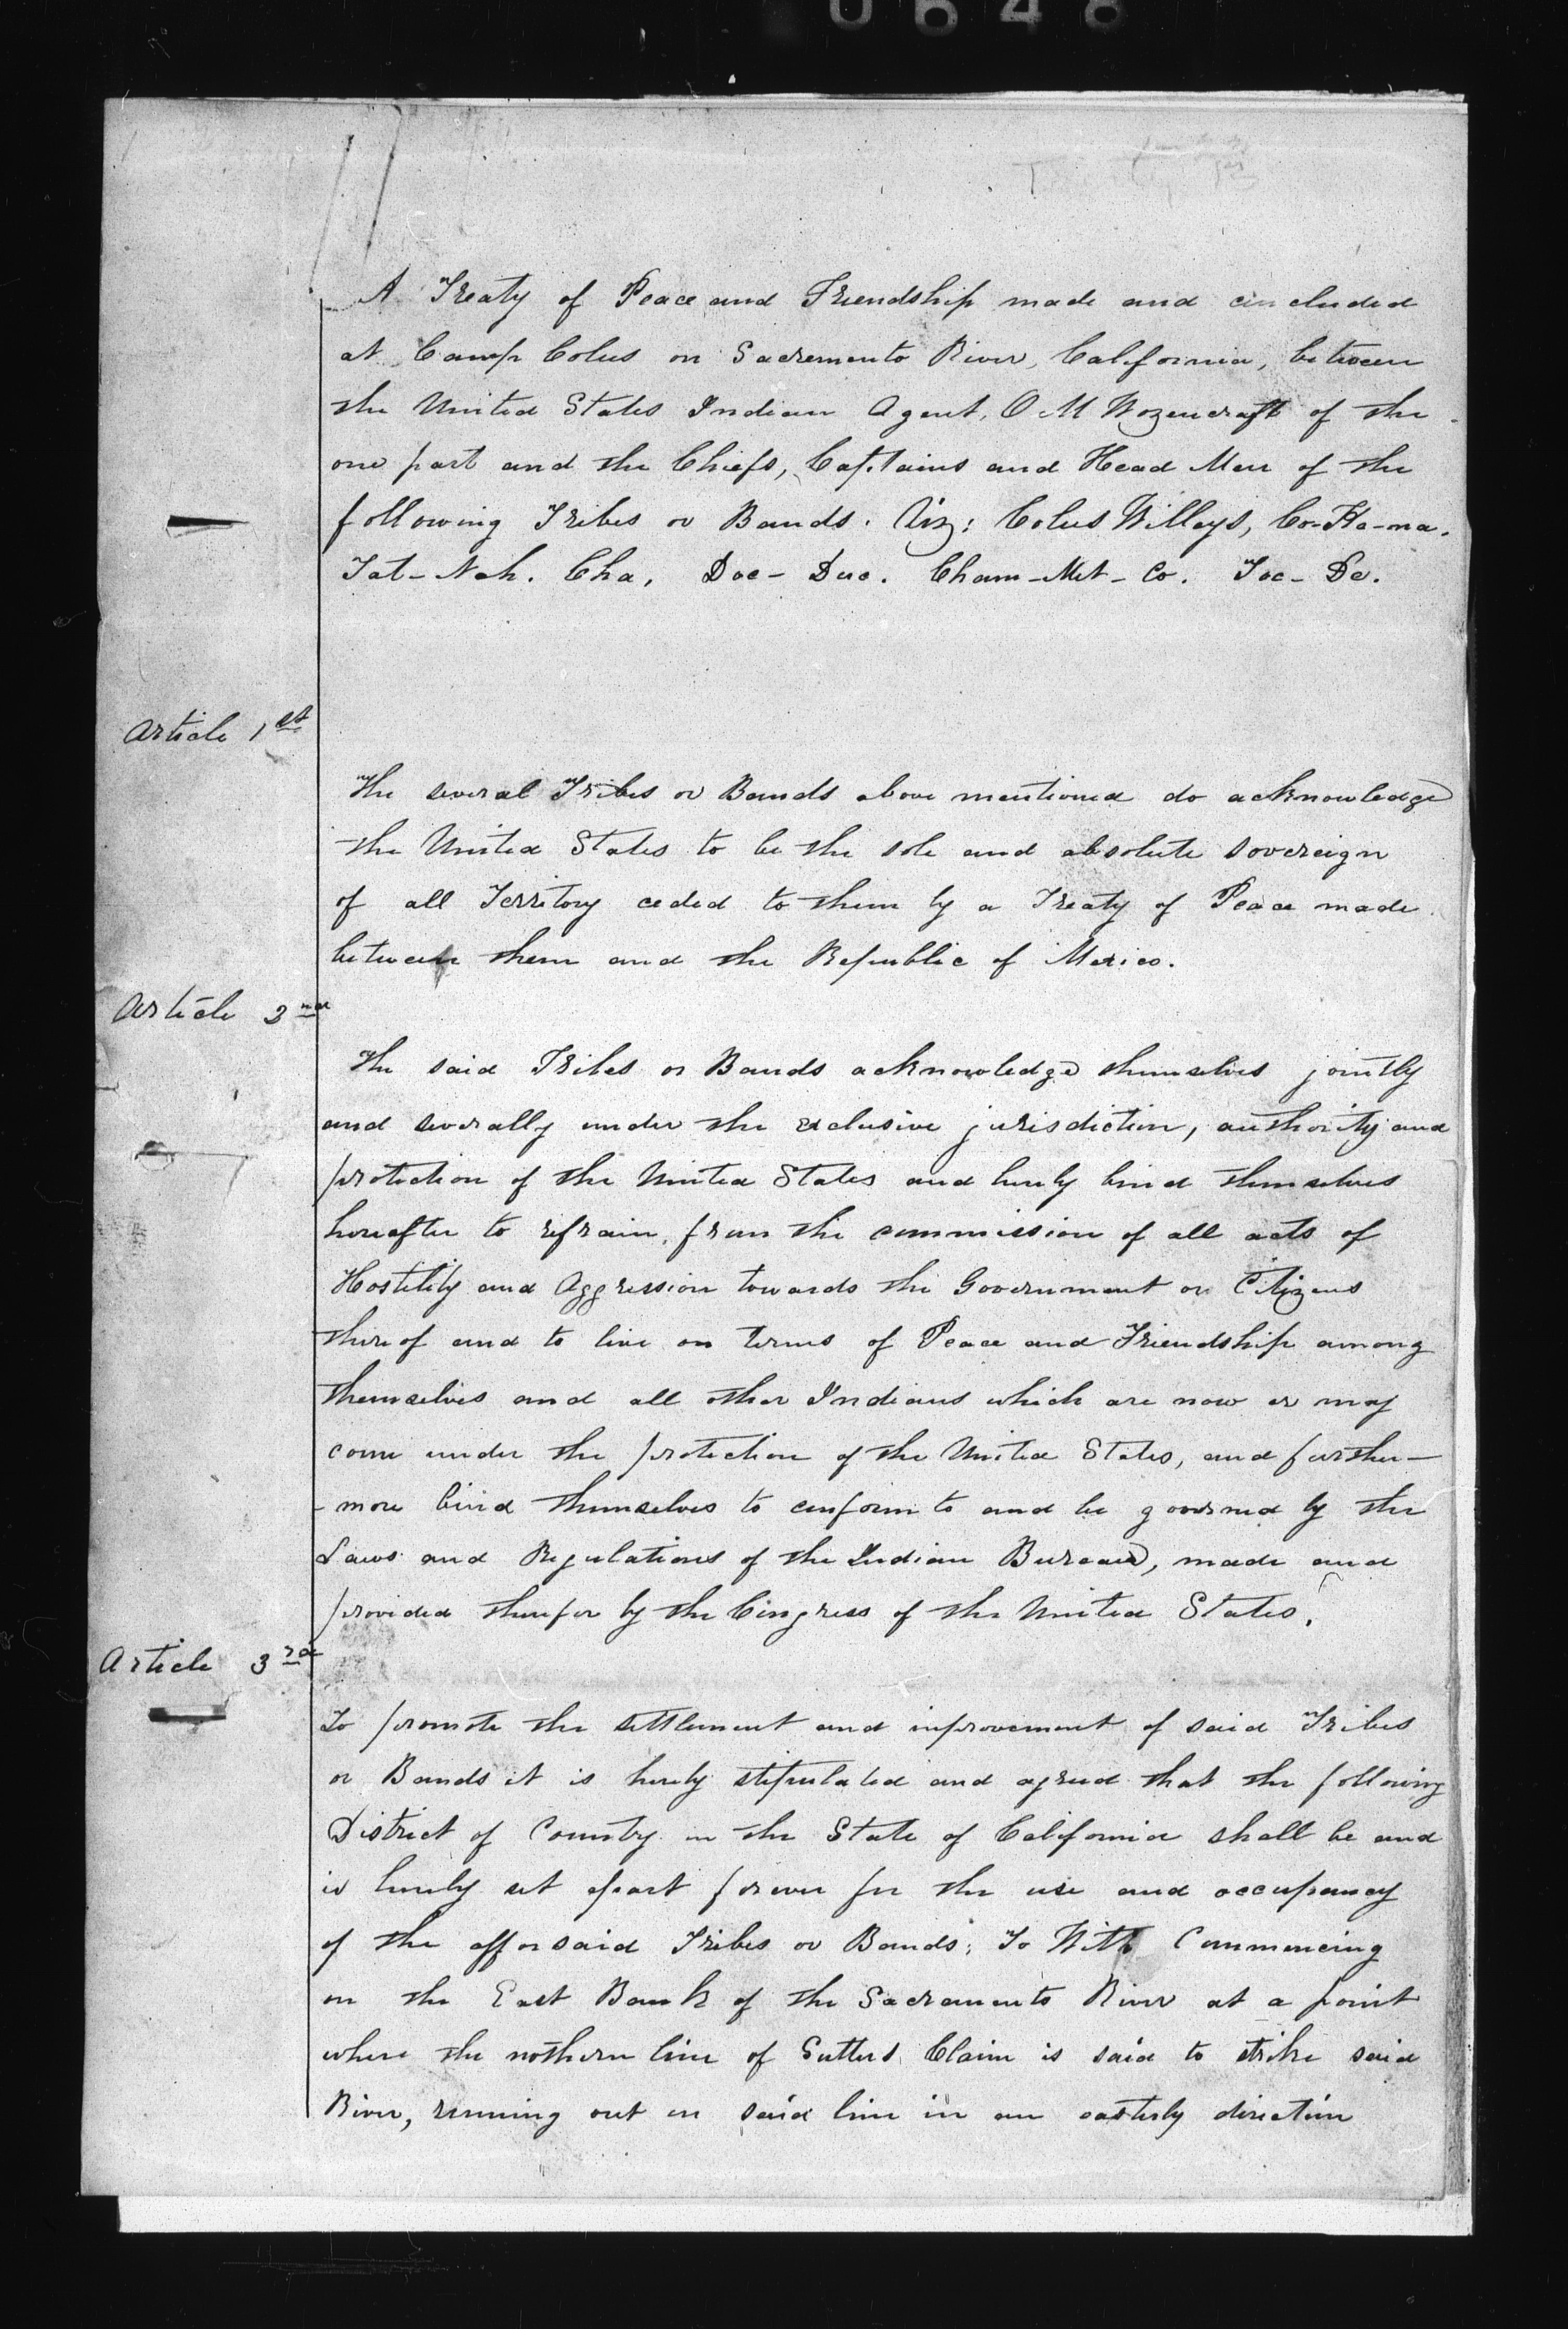 0648
A Treaty of Peace and Friendship made and concluded
at Camp Colus on Sacremento River, California, between
the United States Indian Agent, O M Wozencraft of the
one part and the Chiefs, Captains and Head Men of the
following Tribes or Bands. Viz: Colus Willays, Co-Ha-na.
Tat-Nah. Cha, Doc-Duc. Cham-Met-Co. Toc-De.
Article 1st
The several Tribes or Bands above mentioned do acknowledge
the United States to be the sole and absolute sovereign
of all Territory ceded to them by a Treaty of Peace made
between them and the Republic of Mexico.
Article 2nd
The said Tribes or Bands acknowledge themselves jointly
and severally under the exclusive jurisdiction, authority and
protection of the United States and hereby bind themselves
hereafter to refrain, from the commission of all acts of
Hostility and Aggression towards the Government or Citizens
thereof and to live on terms of Peace and Friendship among
themselves and all other Indians which are now or may
come under the protection of the United States, and further-
-more bind themselves to conform to and be governed by the
Laws and Regulations of the Indian Bureau, made and
provided therefor by the Congress of the United States.
Article 3rd
To promote the settlement and improvement of said Tribes
or Bands it is hereby stipulated and agreed that the following
District of Country in the State of California shall be and
is hereby set apart forever for the use and occupancy
of the afforsaid Tribes or Bands; To Witt Commencing
on the East Bank of the Sacramento River at a point
where the nothern line of Sutters Claim is said to strike said
River, running out on said line in an easterly direction